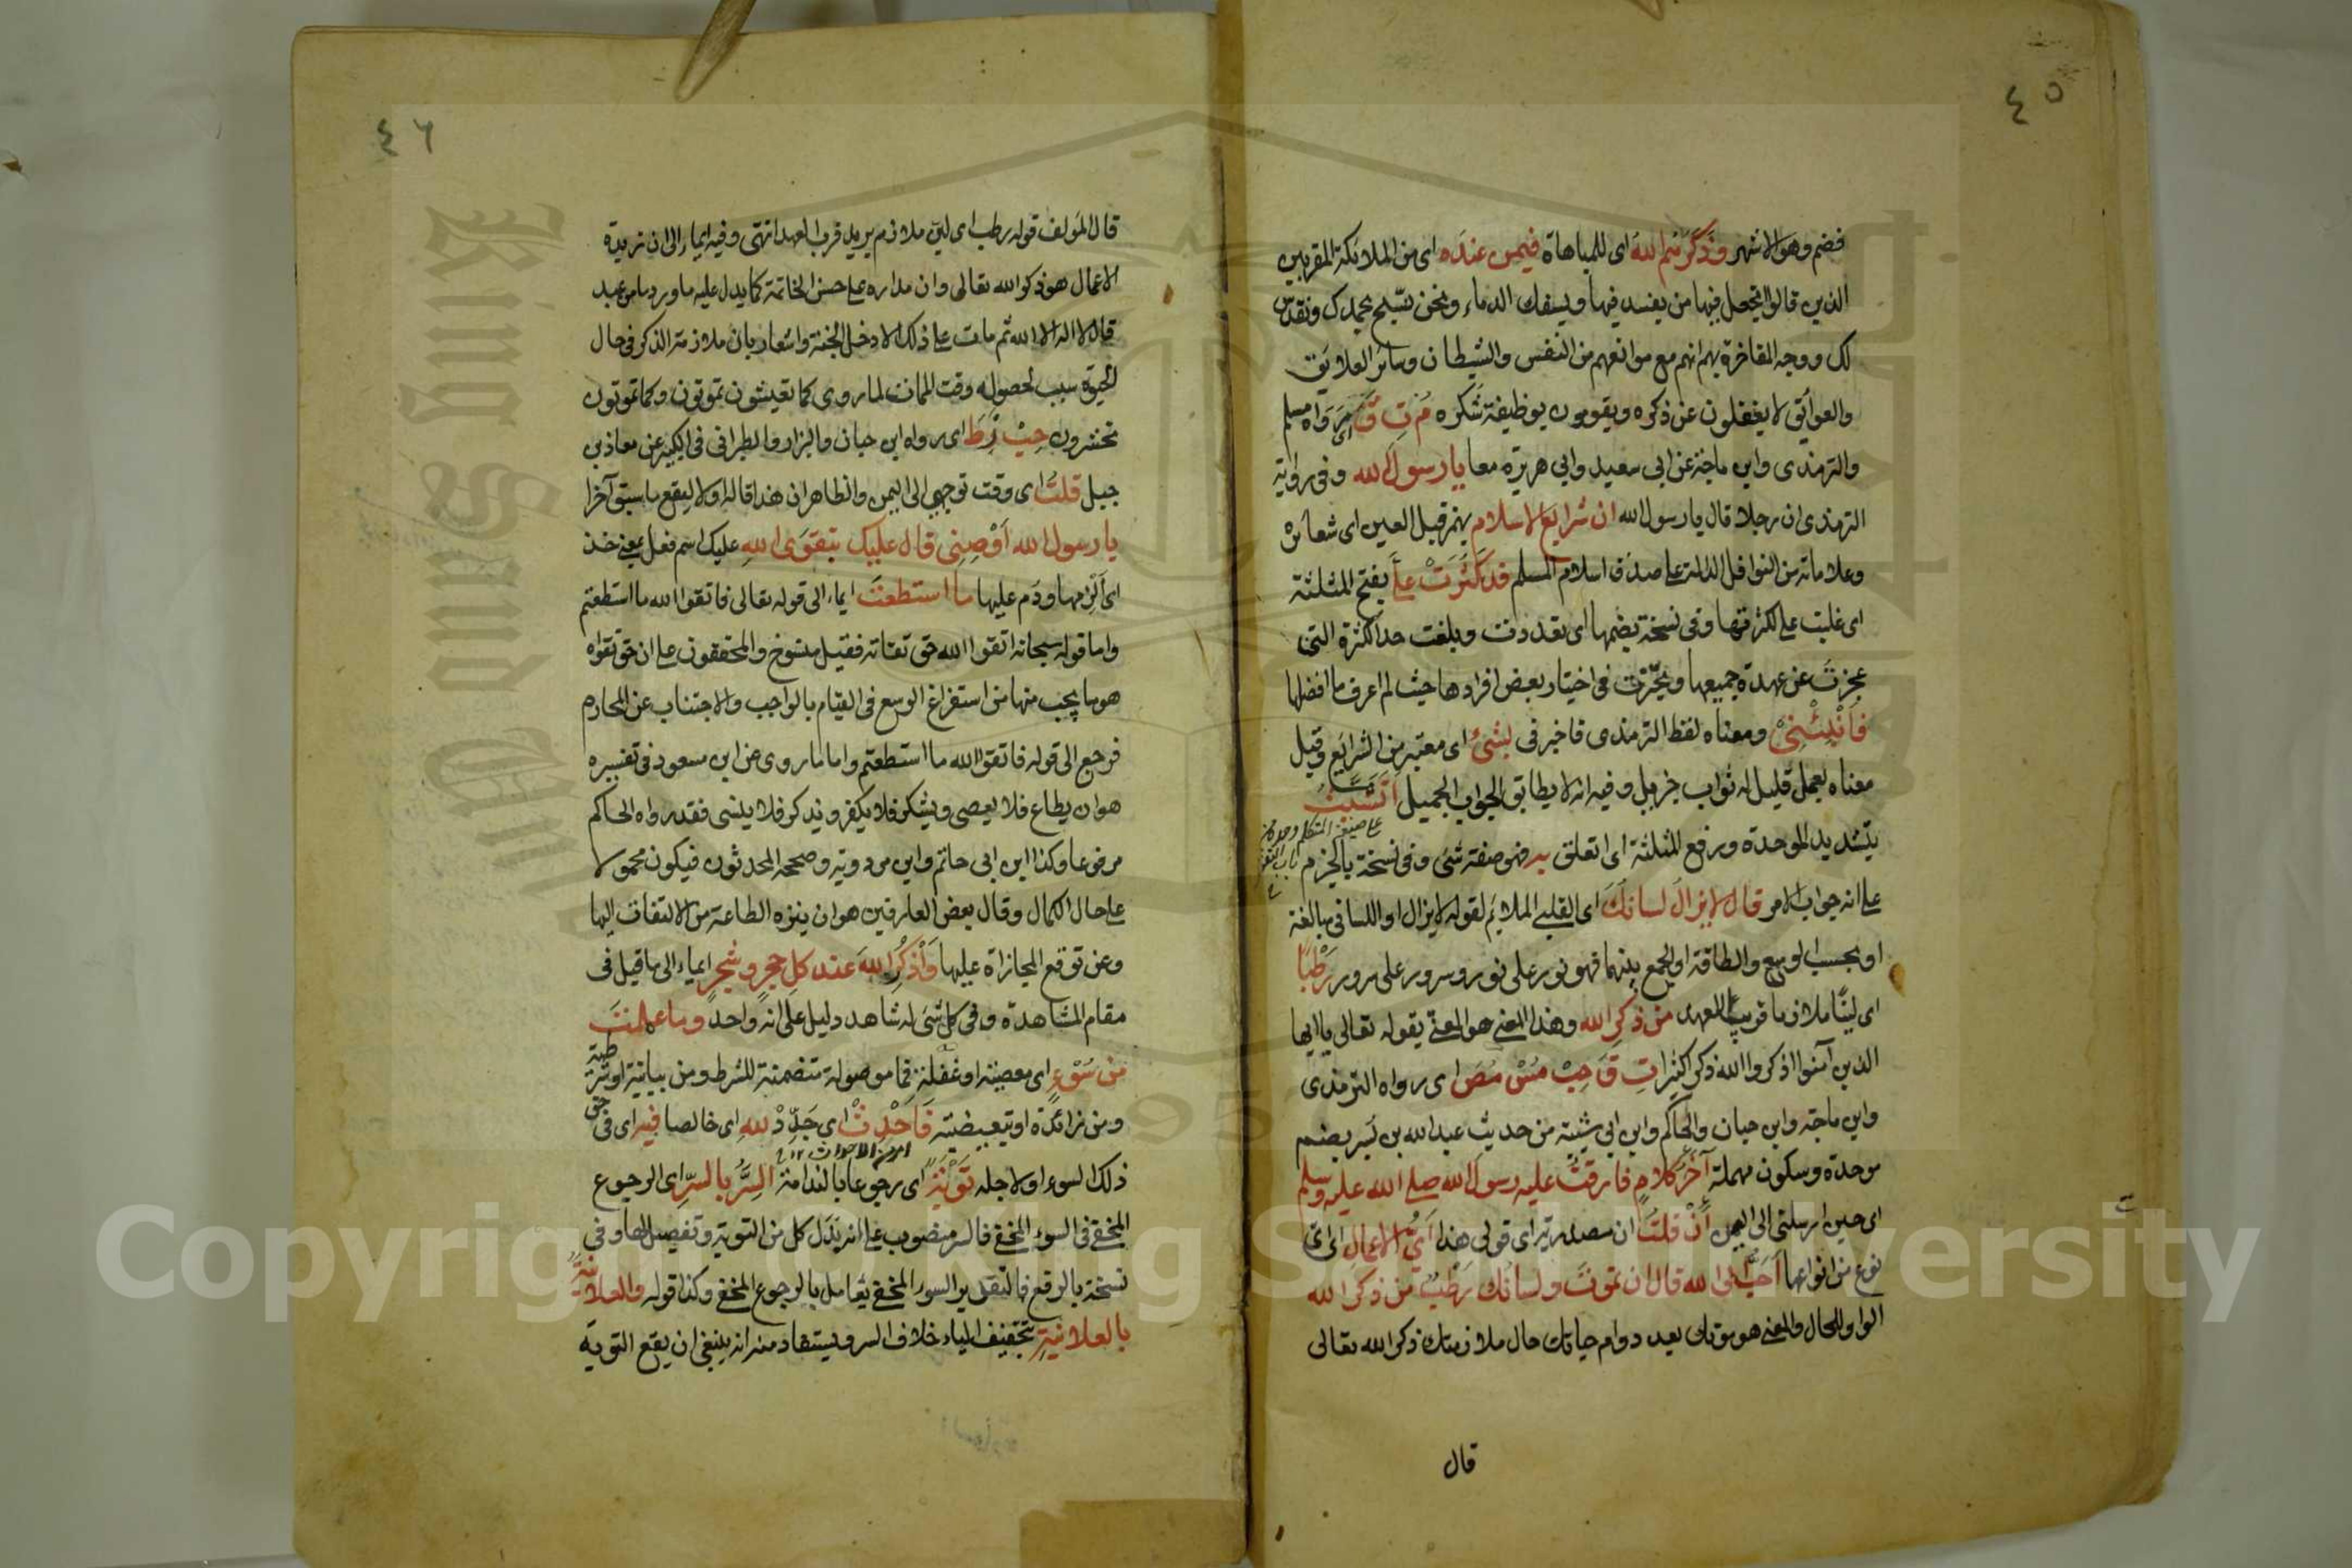 ٤٥
فضم وهو الاشهر وذكرهم الله اى للمباهاة فيمن عنده اى من الملائكة المقربين
الذين قالوا اتجعل فيها من يفسد فيها ويسفك الدماء ونحن نسبح بحمدك ونقدس
لك ووجه المفاخرة بهم انهم مع موانعهم من النفس والشيطان وسائر العلايق
والعوائق لا يغفلون عن ذكره ويقومون بوظيفة شكره م ت ق اى رواه مسلم
والترمذى وابن ماجة عن ابى سعيد وابى هريرة معا يا رسول الله وفى رواية
الترمذى ان رجلا قال يا رسول الله ان شرايع الاسلام بهمز قبل العين اى شعائره
وعلاماته من النوافل الدالة على صدق اسلام المسلم قد كثرت على بفتح المثلثة
اى غلبت على لكثرتها وفى نسخة بضمها اى تعددت وبلغت حد الكثرة التى
عجزت عن عهدة جميعها وتحيرت فى اختيار بعض افرادها حيث لم اعرف ما افضلها
فانبئنى ومعناه لفظ الترمذى فاخبرنى بشئ اى معتبر من الشرايع وقيل
معناه بعمل قليل له ثواب جزيل وفيه انه لا يطابق الجواب الجميل اتشبث
على صيغة المتكلم وحده من باب التفعل
بتشديد الموحدة ورفع المثلثة اى اتعلق به فهو صفة شئ وفى نسخة بالجزم
على انه جواب الامر قال لا يزال لسانك اى القلبى الملائم لقوله لا يزال او اللسانى مبالغة
او بحسب الوسع والطاقة او الجمع بينهما فهو نور على نور وسرور على سرور رطبا
اى لينا ملازما قريب العهد من ذكر الله وهذا المعنى هو المعنى بقوله تعالى يا ايها
الذين آمنوا اذكروا الله ذكرا كثيرا ت ق حب مس مص اى رواه الترمذى
وابن ماجة وابن حبان والحاكم وابن ابى شيبة من حديث عبد الله بن بسر بضم
موحدة وسكون مهملة آخر كلام فارقت عليه رسول الله صلى الله عليه وسلم
اى حين ارسلنى الى اليمن أن قلت ان مصدرية اى قولى هذا اى الاعمال اى اى
نوع من انواعها احب الى الله قال ان تموت ولسانك رطب من ذكر الله
الواو للحال والمعنى هو موتك بعد دوام حياتك حال ملازمتك ذكر الله تعالى
قال
٤٦
قال المؤلف قوله رطب اى لين ملازم يريد قرب العهد انتهى وفيه ايماء الى ان زبدة
الاعمال هو ذكر الله تعالى وان مداره على حسن الخاتمة كما يدل عليه ما ورد ما من عبد
قال لا اله الا الله ثم مات على ذلك الا دخل الجنة واشعار بان ملازمة الذكر فى حال
الحيوة سبب لحصوله وقت الممات لما روى كما تعيشون تموتون وكما تموتون
تحشرون حب ز ط اى رواه ابن حبان والبزار والطبرانى فى الكبير عن معاذ بن
جبل قلت اى وقت توجهى الى اليمن والظاهر ان هذا قاله اولا ليقع ما سبق آخرا
يا رسول الله اوصنى قال عليك بتقوى الله عليك اسم فعل بمعنى خذ
اى الزمها ودم عليها ما استطعت ايماء الى قوله تعالى فاتقوا الله ما استطعتم
واما قوله سبحانه اتقوا الله حق تقاته فقيل منسوخ والمحققون على ان حق تقواه
هو ما يجب منها من استفراغ الوسع فى القيام بالواجب والاجتناب عن المحارم
فرجع الى قوله فاتقوا الله ما استطعتم واما ما روى عن ابن مسعود فى تفسيره
هو ان يطاع فلا يعصى ويشكر فلا يكفر ويذكر فلا ينسى فقد رواه الحاكم
مرفوعا وكذا ابن ابى حاتم وابن مردويه وصححه المحدثون فيكون محمولا
على حال الكمال وقال بعض العارفين هو ان ينزه الطاعة من الالتفات اليها
وعن توقع المجازاة عليها واذكر الله عند كل حجر وشجر ايماء الى ما قيل فى
مقام المشاهدة وفى كل شئ له شاهد دليل على انه واحد وما عملت
من سوء اى معصية او غفلة فما موصولة متضمنة للشرط ومن بيانية او شرطية
ومن زائدة او تبعيضية فاحدث اى جدد لله اى خالصا فيه اى فى حق
امر من الاحداث
ذلك السوء او لاجله توبة اى رجوعا بالندامة السر بالسر اى الرجوع
المخفى فى السوء المخفى فالسر منصوب على انه بدل كل من التوبة وتفصيل لها وفى
نسخة بالرفع فالتقدير السوء المخفى يقابل بالرجوع المخفى وكذا قوله والعلانية
بالعلانية بتخفيف الياء خلاف السر ويستفاد منه انه ينبغى ان يقع التوبة
King Saud University
1957
Copyright © King Saud University